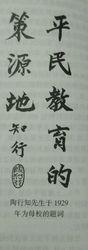 平民教育的
策源地
知行
陶行知先生于1929
年为母校的题词